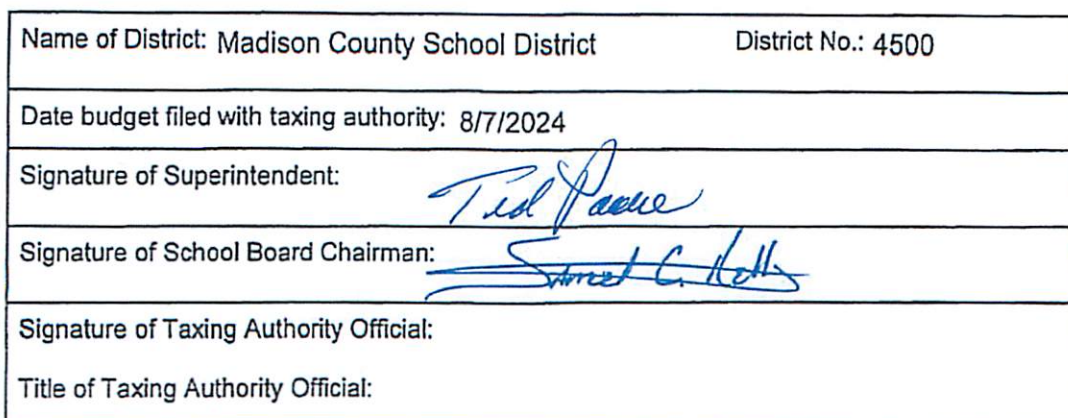 Name of District: Madison County School District District No.: 4500
Date budget filed with taxing authority: 8/7/2024
Signature of Superintendent: Ted
Signature of School Board Chairman: C.
Signature of Taxing Authority Official:
Title of Taxing Authority Official: